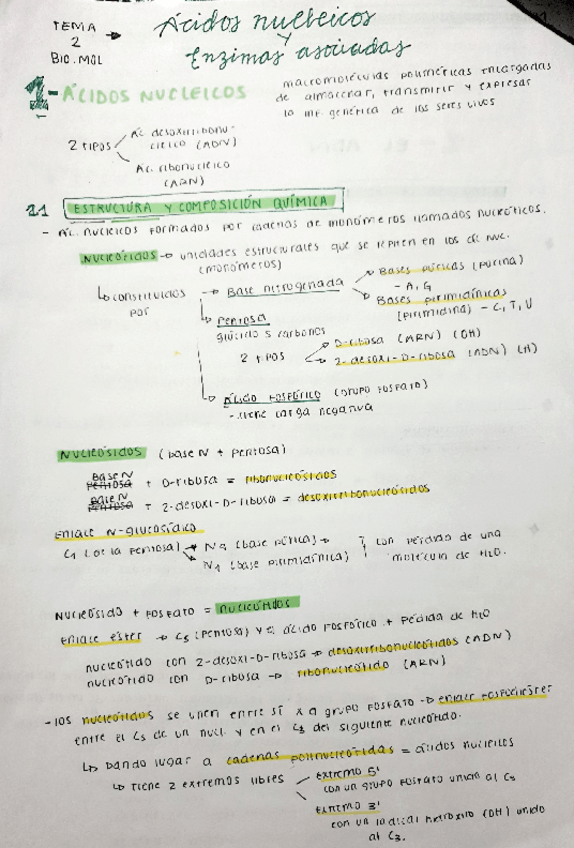 TEMA 2 BIO.MOL → Ácidos nucleicos
y
Enzimas asociadas
1- ÁCIDOS NUCLEICOS
macromoléculas poliméricas encargadas
de almacenar, transmitir y expresar
la inf. genética de los seres vivos
2 TIPOS
Ác. desoxirribonu-
cleico (ADN)
Ác. ribonucleico
(ARN)
ESTRUCTURA Y COMPOSICIÓN QUÍMICA
- Ác. nucleicos formados por cadenas de monómeros llamados nucleótidos.
NUCLEÓTIDOS → unidades estructurales que se repiten en los ác nuc.
(monómeros)
↳ constituidos
por
→ Base nitrogenada
Bases púricas (purina)
- A, G
Bases pirimidínicas
(pirimidina) - C, T, U
↳ Pentosa
glúcido 5 carbonos
2 tipos
→ D-ribosa (ARN) (OH)
→ 2-desoxi-D-ribosa (ADN) (H)
↳ Ácido fosfórico (grupo fosfato)
- tiene carga negativa
NUCLEÓSIDOS (base N + pentosa)
Base N
Pentosa + D-ribosa = ribonucleósidos
Base N
Pentosa + 2-desoxi-D-ribosa = desoxirribonucleósidos
Enlace N-glucosídico
C1 (de la pentosa) → N9 (base púrica)
→ N1 (base pirimidínica)
con pérdida de una
molécula de H2O.
Nucleósido + Fosfato = nucleótidos
Enlace éster → C5 (pentosa) y el ácido fosfórico + pédida de H2O
nucleótido con 2-desoxi-D-ribosa → desoxirribonucleótidos (ADN)
nucleótido con D-ribosa → ribonucleótido (ARN)
- los nucleótidos se unen entre sí x a grupo fosfato → enlace fosfodiéster
entre el C5 de un nucl. y en el C3 del siguiente nucleótido.
↳ Dando lugar a cadenas polinucleótidas = ácidos nucleicos
↳ tiene 2 extremos libres
Extremo 5'
con un grupo fosfato unido al C5
Extremo 3'
con un radical hidroxilo (OH) unido
al C3.